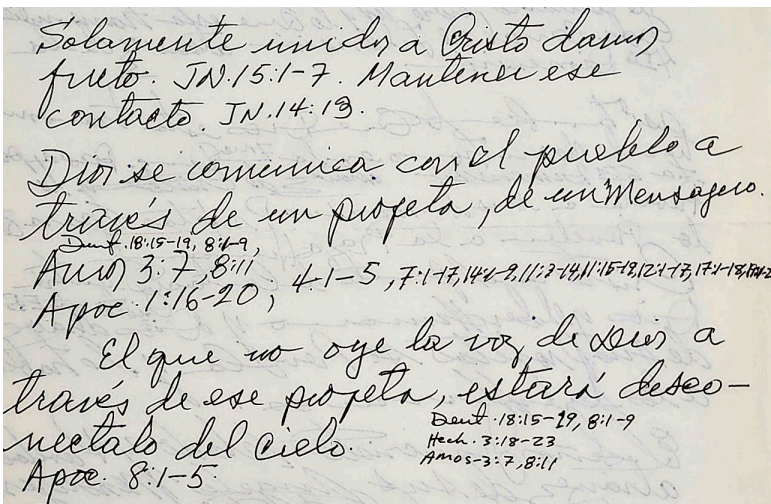 Solamente unidos a Cristo damos
fruto. JN.15:1-7. Mantener ese
contacto. JN.14:19.
Dios se comunica con el pueblo a
través de un profeta, de un Mensagero.
Deut. 18:15-19, 8:1-9,
Amos 3:7, 8:11
Apoc. 1:16-20; 4:1-5, 7:1-17, 14:1-9, 11:3-14, 11:15-19, 12:1-17, 17:1-18,
El que no oye la voz de Dios a
través de ese profeta, estará desco-
nectalo del cielo.
Deut. 18:15-19, 8:1-9
Hech. 3:18-23
Amos-3:7, 8:11
Apoc. 8:1-5.